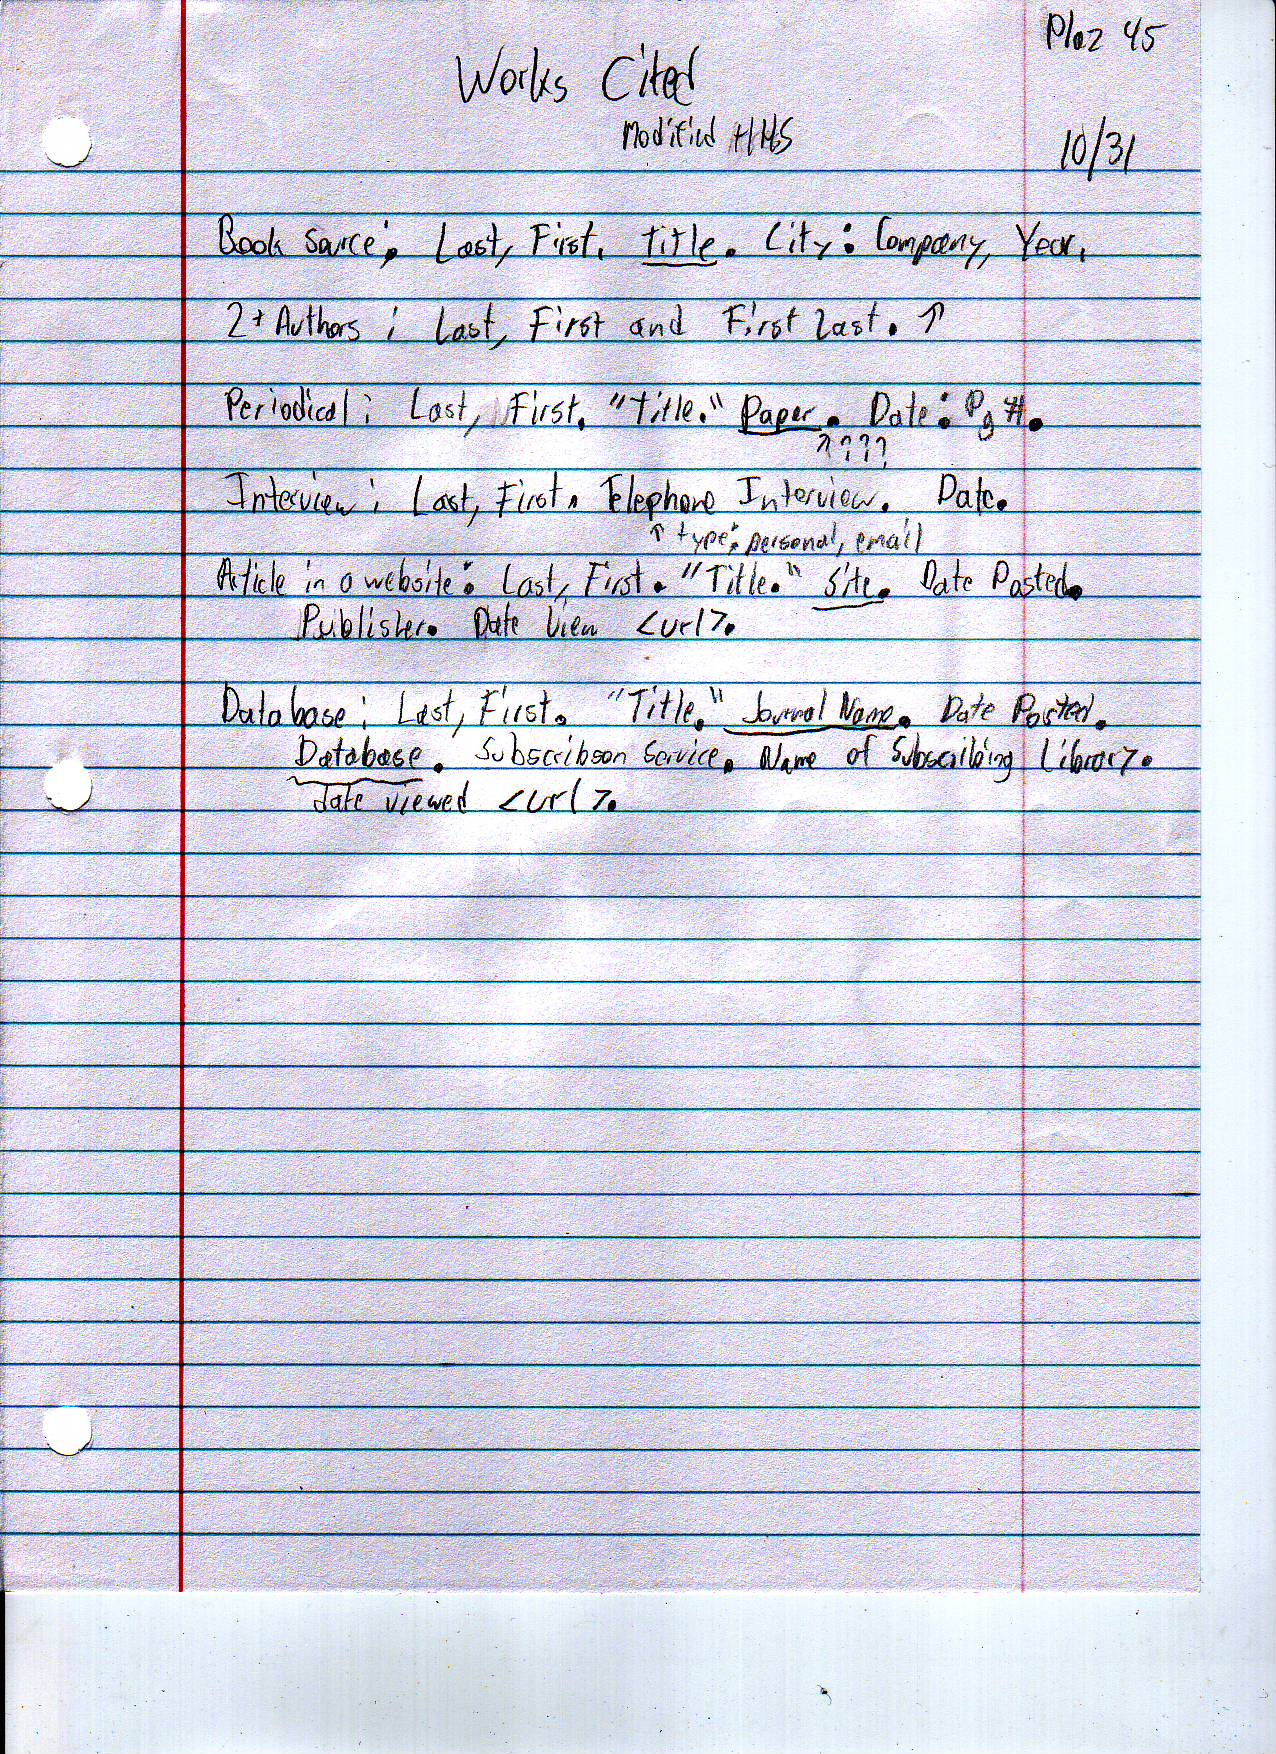 Plaz 45
Works Cited
Modified HHS
10/31
Book Source: Last, First. Title. City: Company, Year.
2+ Authors: Last, First and First Last. ↑
Periodical: Last, First. "Title." Paper. Date: Pg #.
↑ ? ? ?
Interview: Last, First. Telephone Interview. Date.
↑ type: personal, email
Article in a website: Last, First. "Title." Site. Date Posted.
Publisher. Date View <url>.
Database: Last, First. "Title." Journal Name. Date Posted.
Database. Subscribson Service. Name of Subscribing Library.
date viewed <url>.